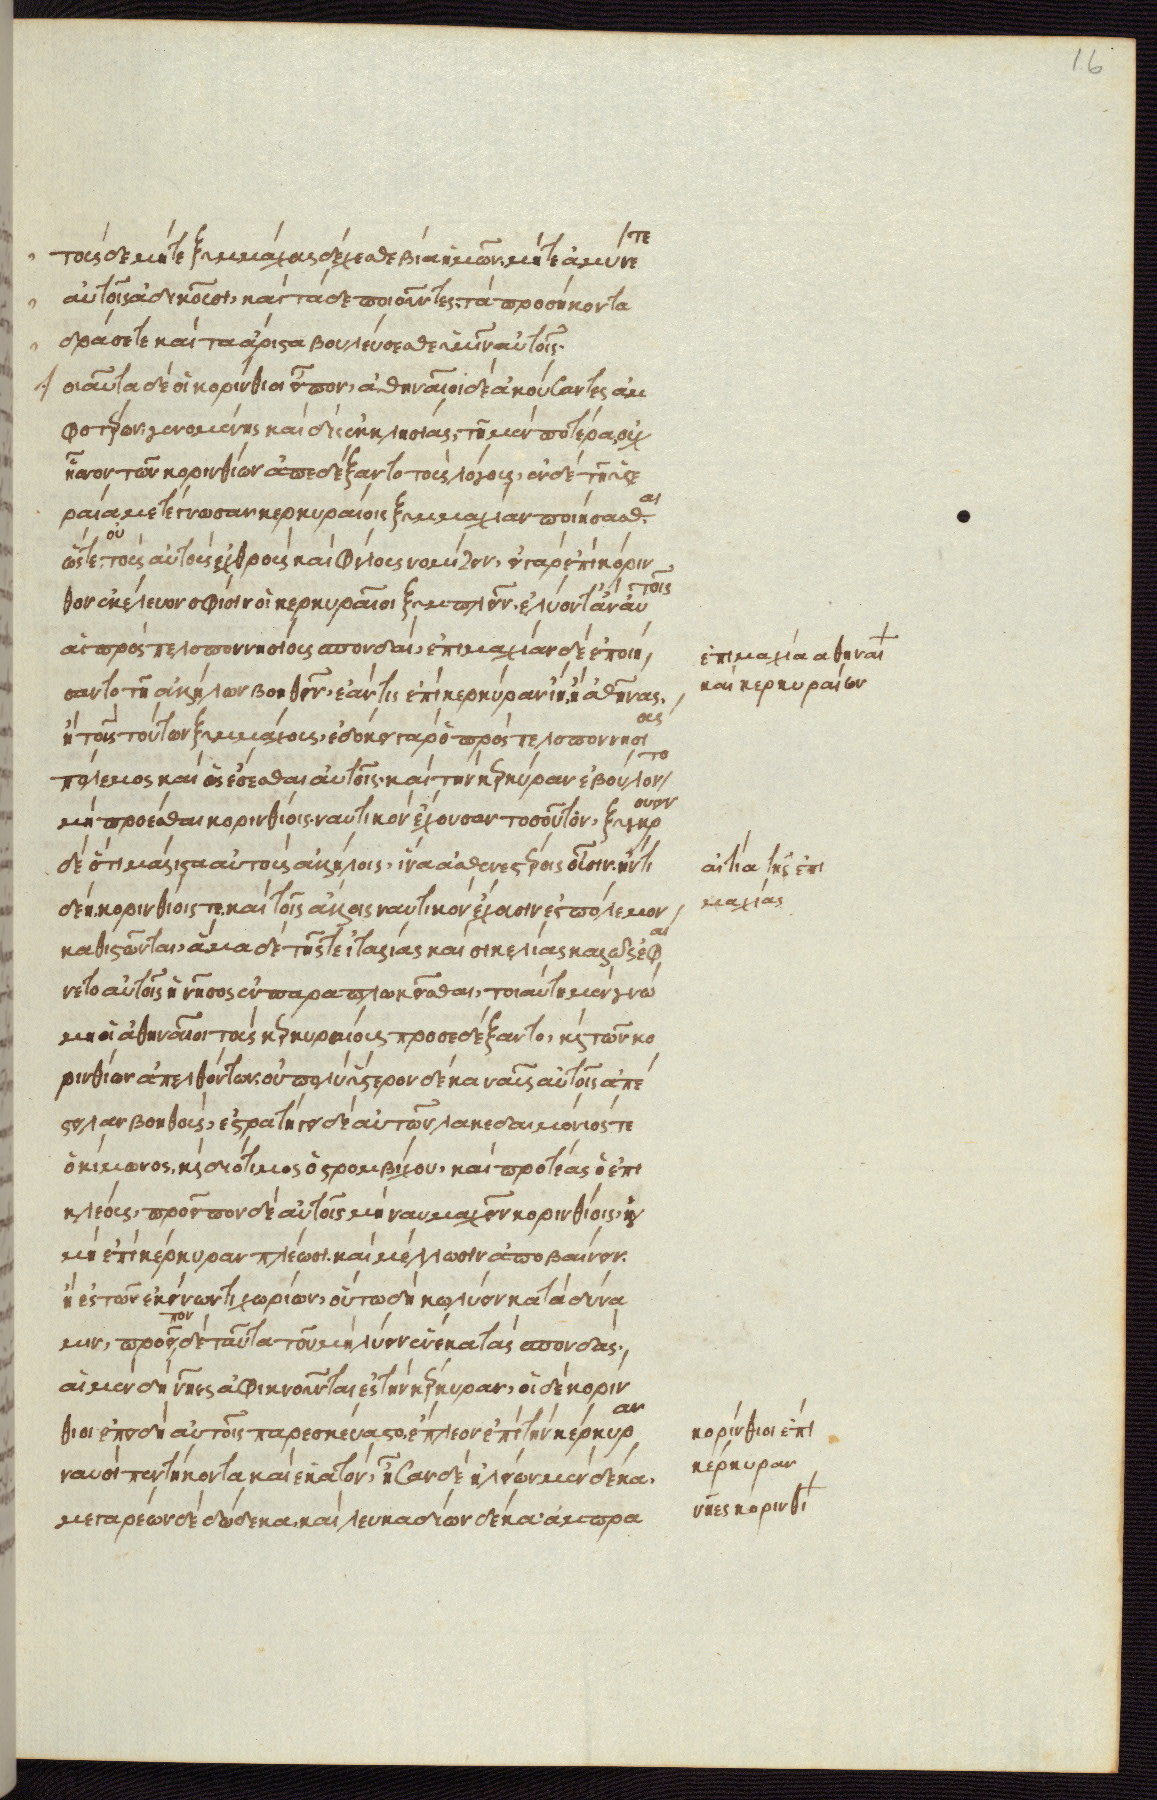 16
τούσδε μήτε ξυμμάχους δέχεσθε βία ἡμῶν, μήτε ἀμύνετε
αὐτοῖς ἀδικοῦσι, καὶ τάδε ποιοῦντες, τὰ προσήκοντα
δράσετε καὶ τὰ ἄριστα βουλεύσεσθε ὑμῖν αὐτοῖς.
οιαῦτα δὲ οἱ κορίνθιοι εἶπον, ἀθηναῖοι δὲ ἀκούσαντες ἀμ
φοτέρων, γενομένης καὶ δὶς ἐκκλησίας, τῇ μὲν προτέρα, οὐχ
ἧσσον τῶν κορινθίων ἀπεδέξαντο τοὺς λόγους, ἐν δὲ τῇ ὑστε
ραία μετέγνωσαν κερκυραίοις ξυμμαχίαν ποιήσασθαι
ὥστε τοὺς αὐτοὺς ἐχθροὺς καὶ φίλους νομίζειν, εἰ γὰρ ἐπὶ κόριν
θον ἐκέλευον σφίσιν οἱ κερκυραῖοι ξυμπλεῖν, ἐλύοντ' ἂν αὐτοῖς
αἱ πρὸς πελοποννησίους σπονδαί, ἐπιμαχίαν δὲ ἐποιή
σαντο τῇ ἀλλήλων βοηθεῖν, ἐάν τις ἐπὶ κέρκυραν ἴη, ἢ ἀθήνας,
ἢ τοὺς τούτων ξυμμάχους, ἐδόκει γὰρ ὁ πρὸς πελοποννησίους
πόλεμος καὶ ὣς ἔσεσθαι αὐτοῖς, καὶ τὴν κέρκυραν ἐβούλοντο
μὴ προέσθαι κορινθίοις ναυτικὸν ἔχουσαν τοσοῦτον, ξυγκρούειν
δὲ ὅτι μάλιστα αὐτοὺς ἀλλήλοις, ἵνα ἀσθενεστέροις οὖσιν, ἤν τι
δέη, κορινθίοις τε καὶ τοῖς ἄλλοις ναυτικὸν ἔχουσιν ἐς πόλεμον
καθιστῶνται, ἅμα δὲ τῆς τε ἰταλίας καὶ σικελίας καλῶς ἐφαί
νετο αὐτοῖς ἡ νῆσος ἐν παράπλω κεῖσθαι, τοιαύτη μὲν γνώ
μη οἱ ἀθηναῖοι τοὺς κερκυραίους προσεδέξαντο, καὶ τῶν κο
ρινθίων ἀπελθόντων, οὐ πολὺ ὕστερον δέκα ναῦς αὐτοῖς ἀπέ
στειλαν βοηθούς, ἐστρατήγει δὲ αὐτῶν λακεδαιμόνιός τε
ὁ κίμωνος, καὶ διότιμος ὁ στρομβίχου, καὶ πρωτέας ὁ ἐπι
κλέους, προεῖπον δὲ αὐτοῖς μὴ ναυμαχεῖν κορινθίοις, ἢν
μὴ ἐπὶ κέρκυραν πλέωσι, καὶ μέλλωσιν ἀποβαίνειν.
ἢ ἐς τῶν ἐκείνων τι χωρίων, οὕτω δὴ κωλύειν κατὰ δύνα
μιν, προεῖπον δὲ ταῦτα τοῦ μὴ λύειν ἕνεκα τὰς σπονδάς,
αἱ μὲν δὴ νῆες ἀφικνοῦνται ἐς τὴν κέρκυραν, οἱ δὲ κορίν
θιοι ἐπειδὴ αὐτοῖς παρεσκεύαστο, ἔπλεον ἐπὶ τὴν κέρκυραν
ναυσὶ πεντήκοντα καὶ ἑκατόν, ἦσαν δὲ ἠλείων μὲν δέκα.
μεγαρέων δὲ δώδεκα, καὶ λευκαδίων δέκα· ἀμπρα
ἐπιμαχία ἀθηναί
καὶ κερκυραίων
αἰτία τῆς ἐπι
μαχίας
κορίνθιοι ἐπὶ
κέρκυραν
νῆες κορινθί